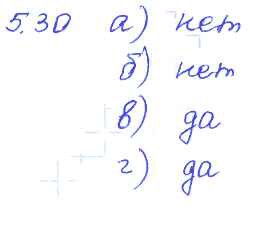 5.30 а) нет
б) нет
в) да
г) да